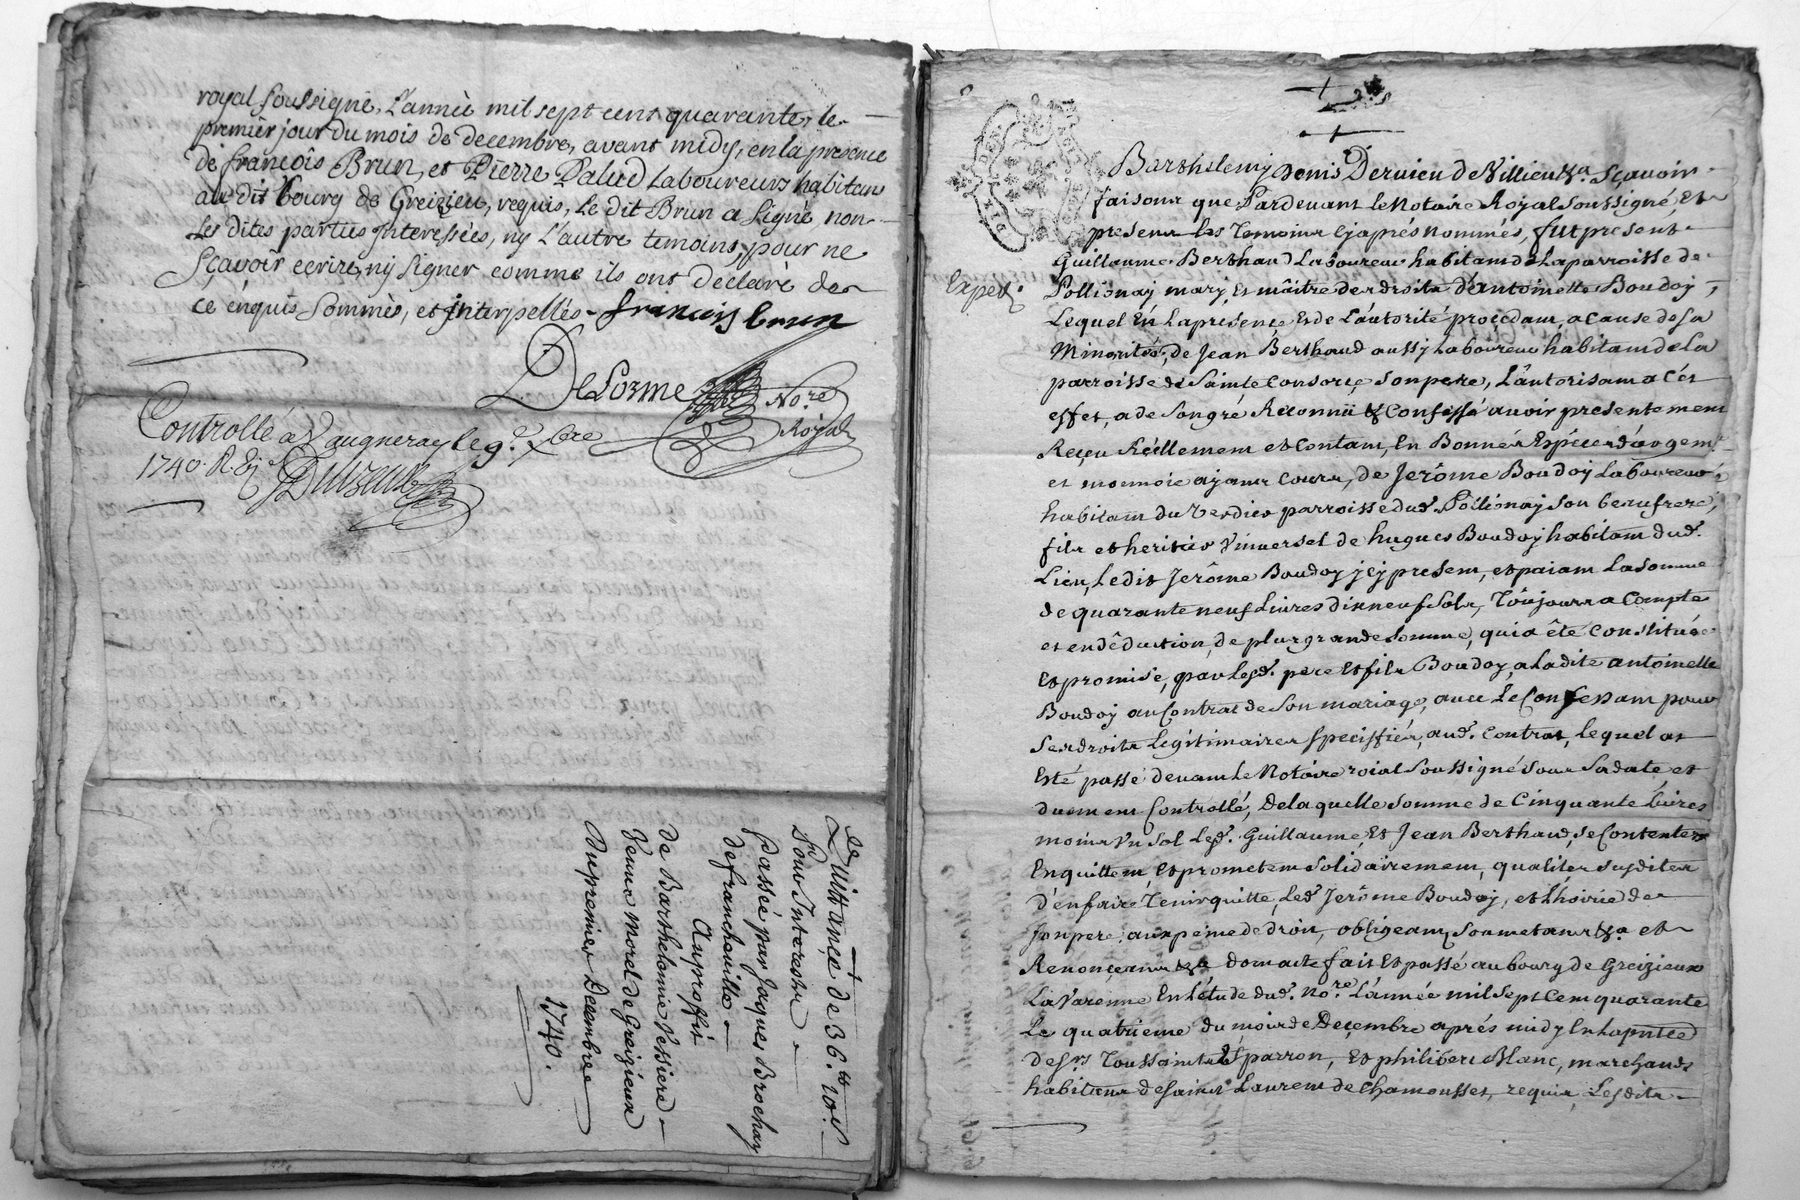 royal soussigné. L'année mil sept cent quarante, le
premier jour du mois de decembre, avant midy, en la presence
de françois Brun, et Pierre Palud Laboureurs habitans
au dit bourg de Greizieu, requis, Le dit Brun a signé, non
Les dites parties Interessées, ny L'autre temoins, pour ne
sçavoir ecrire, ny signer comme ils ont declaré de
ce enquis sommés, et Interpellés. francois brun
DeLorme No.re
Royal
Controllé a Vaugneray le 9.e xbre
1740. R.
Quittance de 36.# 10s
Pour Interests
Passée par Jaques Brochay
de franchouille
Au proffit
de Barthelemie Jessiere
Veuve Morel de Greizieux
Du premier Decembre
1740.
Barthelemy Denis Dervieu de Villieu &a. Sçavoir
faisons que Pardevant le Notaire Royal Soussigné, Et
presens les Temoins cy aprés nommés, fut present
Guillaume Berthaud Laboureur habitant de La parroisse de
Expedé.
Pollionay mary et maître des droits d'antoinette Boudoy,
Lequel En La presence Et de L'autorité procedant, a cause de sa
Minorité, de Jean Berthaud aussy Laboureur habitant de La
parroisse de Sainte Consorce son pere, L'autorisant a cét
effet, a de son gré Reconnü & Confessé avoir presentement
Reçeu Réellement et Contant, En Bonnes Espéces d'argent
et monnoie ayant Cours, de Jerôme Boudoy Laboureur
habitant du Verdier parroisse dud. Pollionay son beaufrere,
fils et heritier Vniversel de hugues Boudoy habitant dud.
Lieu, Ledit Jerôme Boudoy jcy present, et paiant La somme
de quarante neuf Livres dixneuf Sols, Toûjours a Compte
et en dêduction, de plus grande Somme, qui a êté Constituée
Et promise, par Lesd. pere Et fils Boudoy, a Ladite antoinette
Boudoy au Contrat de Son mariage, avec Le Confessant pour
Ses droits Legitimaires Speciffiés, aud. Contrat, lequel at
Esté passé devant le Notaire roial Soussigné sous Sa date, et
duement Controllé, De laquelle Somme de Cinquante Livres
moins Vn Sol Lesd. Guillaume, Et Jean Berthaud, se Contentent
En quittent, Et prometent Solidairement, qualités susdites
d'en faire Tenir quitte, Led. Jerôme Boudoy, et L'hoirie de
son pere, aux peines de droit, obligeans, Soumetans &a et
Renonçeans &a dont acte fait Et passé au bourg de Greizieux
La Varenne En L'étude dud. No.re L'année mil Sept Cent quarante
Le quatrieme du mois de Decembre aprés midy En La pntce
de Srs Toussaint Esparron, Et philibert Blanc, marchands
habitans de Saint Laurent de Chamousset, requis, Lesdits